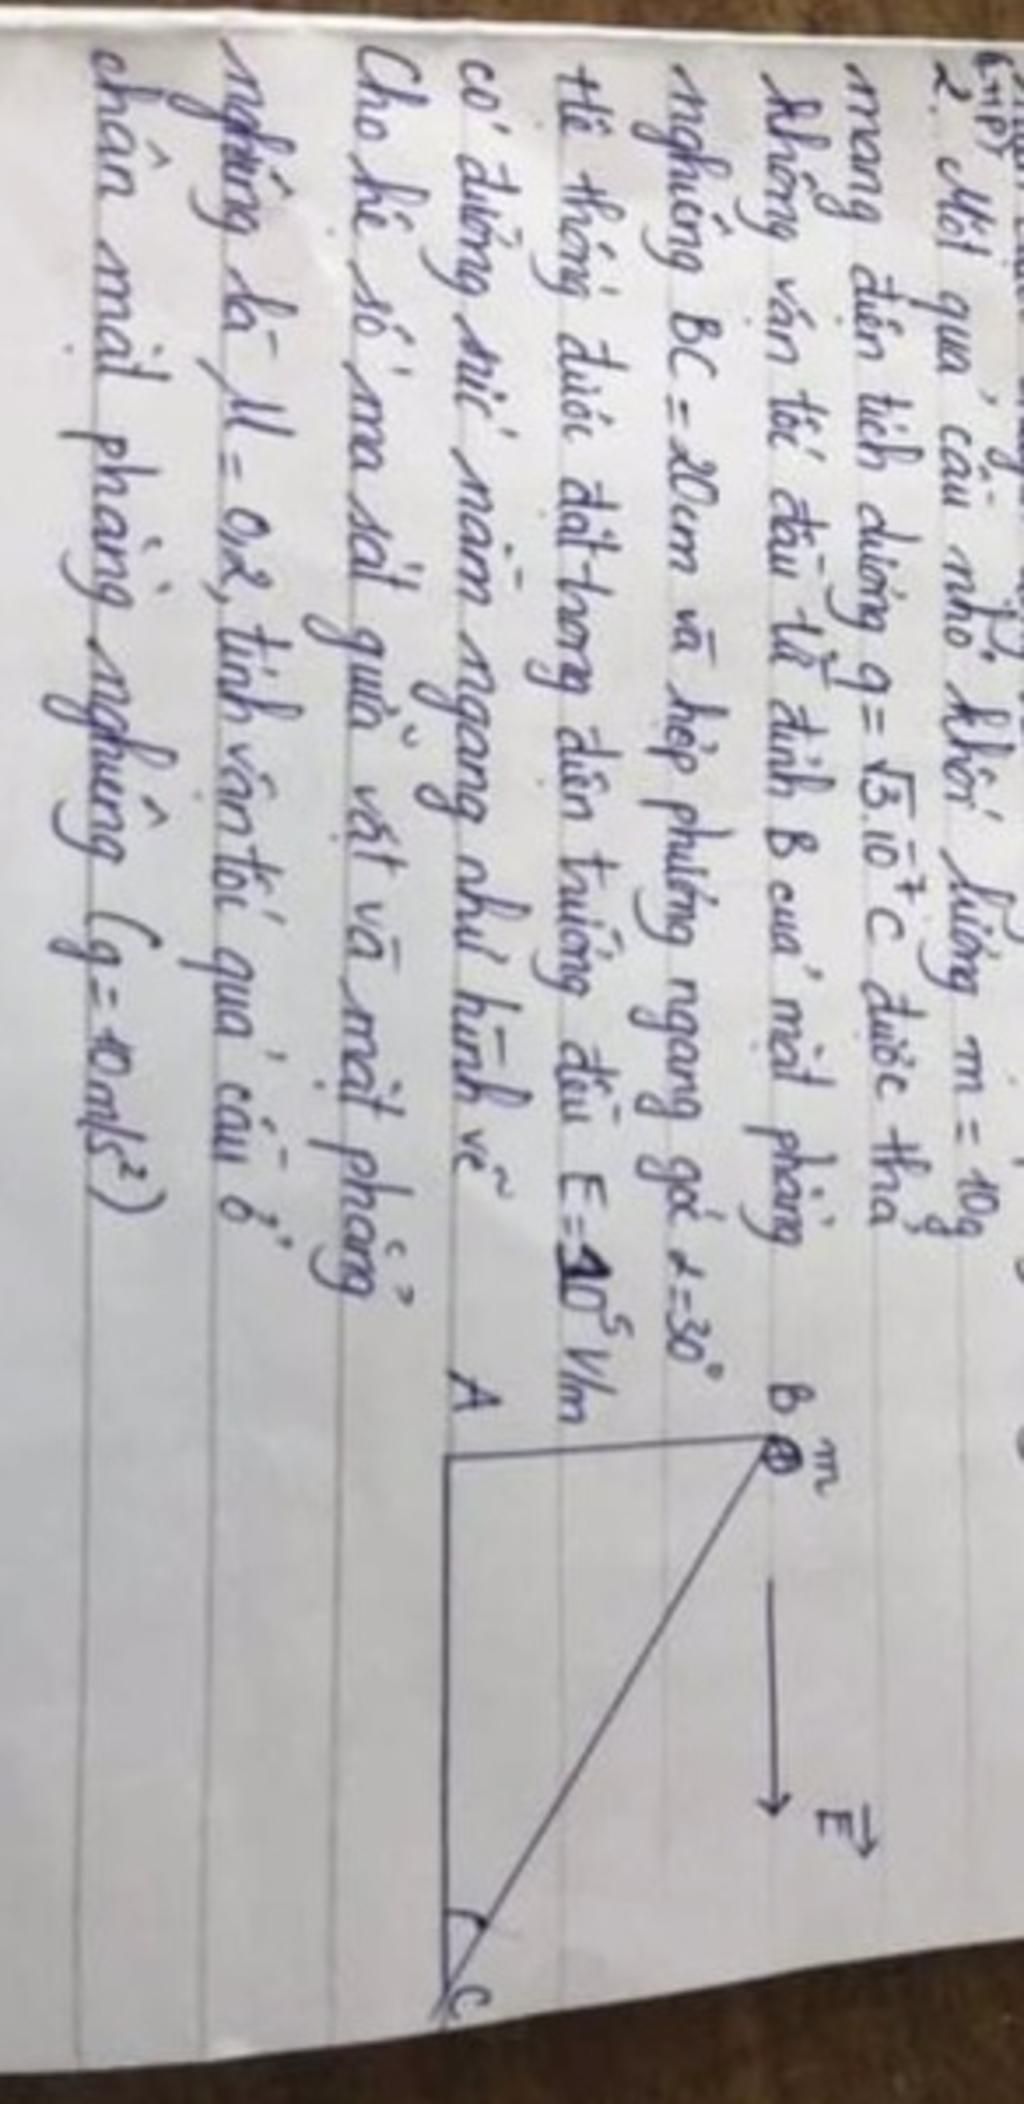 2. Một quả cầu nhỏ khối lượng m = 10g
mang điện tích dương q = √3.10⁻⁷C được thả
không vận tốc đầu từ đỉnh B của mặt phẳng
nghiêng BC = 20cm và hợp phương ngang góc α = 30°
Hệ thống được đặt trong điện trường đều E = 10⁵ V/m
có đường sức nằm ngang như hình vẽ
Cho hệ số ma sát giữa vật và mặt phẳng
nghiêng là μ = 0,2, tính vận tốc quả cầu ở
chân mặt phẳng nghiêng (g = 10m/s²)
m
E
B
A
C